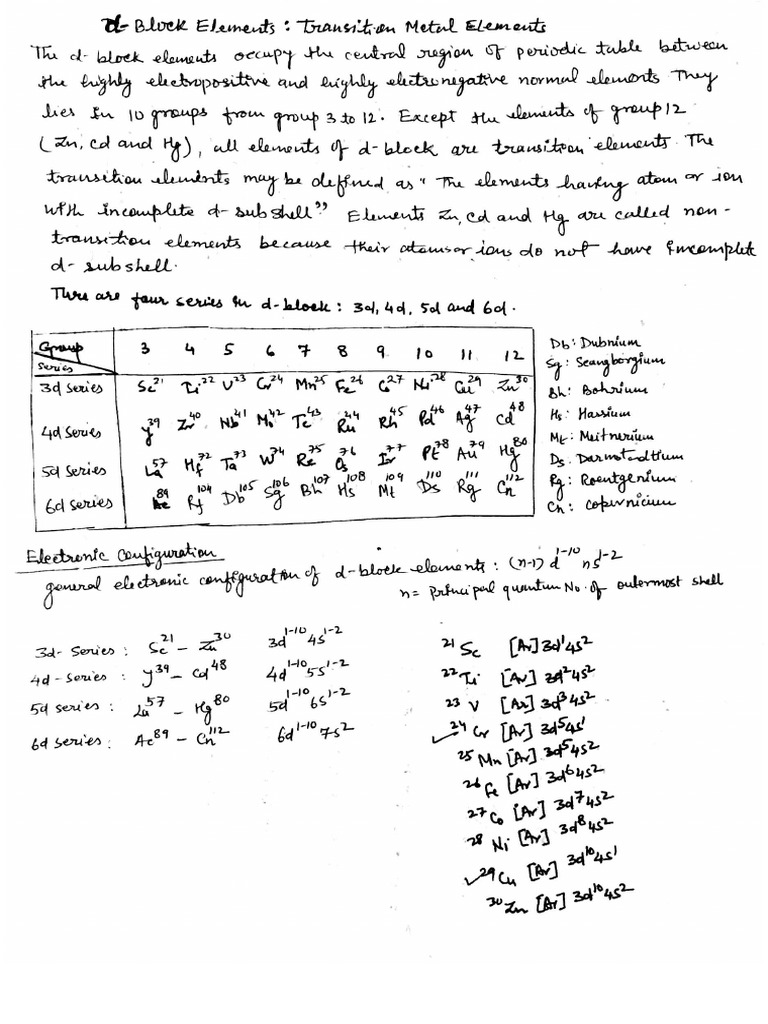 d-Block Elements: Transition Metal Elements
The d-block elements occupy the central region of periodic table between
the highly electropositive and highly electronegative normal elements They
lies in 10 groups from group 3 to 12. Except the elements of group 12
(Zn, Cd and Hg), all elements of d-block are transition elements. The
transition elements may be defined as "The elements having atom or ion
with incomplete d-subshell" Elements Zn, Cd and Hg are called non-
transition elements because their atoms or ions do not have incomplete
d-subshell.
There are four series in d-block: 3d, 4d, 5d and 6d.
Group 3 4 5 6 7 8 9 10 11 12
Series
3d series Sc²¹ Ti²² V²³ Cr²⁴ Mn²⁵ Fe²⁶ Co²⁷ Ni²⁸ Cu²⁹ Zn³⁰
4d series Y³⁹ Zr⁴⁰ Nb⁴¹ Mo⁴² Tc⁴³ Ru⁴⁴ Rh⁴⁵ Pd⁴⁶ Ag⁴⁷ Cd⁴⁸
5d series La⁵⁷ Hf⁷² Ta⁷³ W⁷⁴ Re⁷⁵ Os⁷⁶ Ir⁷⁷ Pt⁷⁸ Au⁷⁹ Hg⁸⁰
6d series Ac⁸⁹ Rf¹⁰⁴ Db¹⁰⁵ Sg¹⁰⁶ Bh¹⁰⁷ Hs¹⁰⁸ Mt¹⁰⁹ Ds¹¹⁰ Rg¹¹¹ Cn¹¹²
Db: Dubnium
Sg: Seangborgium
Bh: Bohrium
Hs: Hassium
Mt: Meitnerium
Ds: Darmstadtium
Rg: Roentgenium
Cn: Copernicium
Electronic Configuration
general electronic configuration of d-block elements: (n-1) d¹⁻¹⁰ ns¹⁻²
n= Principal quantum No. of outermost shell
3d- Series: Sc²¹ – Zn³⁰ 3d¹⁻¹⁰ 4s¹⁻²
4d-series: Y³⁹ – Cd⁴⁸ 4d¹⁻¹⁰ 5s¹⁻²
5d series: La⁵⁷ – Hg⁸⁰ 5d¹⁻¹⁰ 6s¹⁻²
6d series: Ac⁸⁹ – Cn¹¹² 6d¹⁻¹⁰ 7s²
²¹Sc [Ar] 3d¹4s²
²²Ti [Ar] 3d²4s²
²³V [Ar] 3d³4s²
✓²⁴Cr [Ar] 3d⁵4s¹
²⁵Mn [Ar] 3d⁵4s²
²⁶Fe [Ar] 3d⁶4s²
²⁷Co [Ar] 3d⁷4s²
²⁸Ni [Ar] 3d⁸4s²
✓²⁹Cu [Ar] 3d¹⁰4s¹
³⁰Zn [Ar] 3d¹⁰4s²